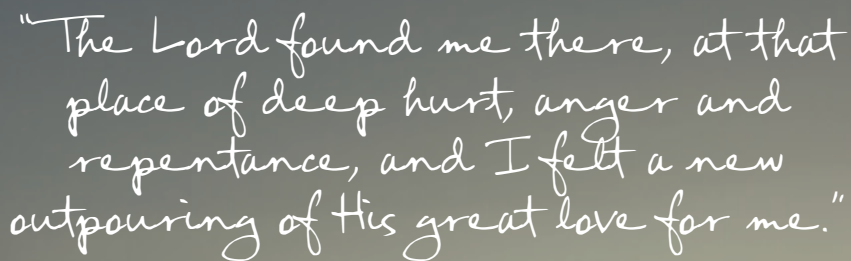 "The Lord found me there, at that
place of deep hurt, anger and
repentance, and I felt a new
outpouring of His great love for me."